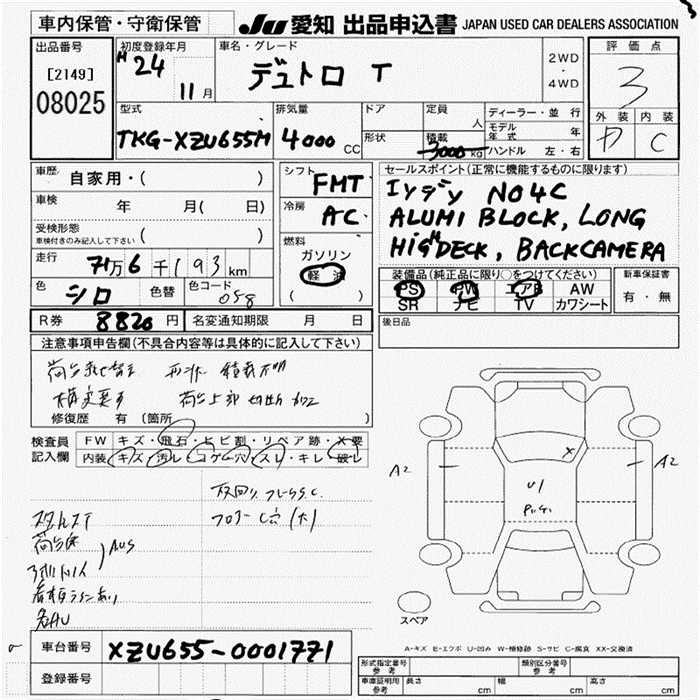 車内保管・守衛保管 JU 愛知 出品申込書 JAPAN USED CAR DEALERS ASSOCIATION
出品番号
[2149]
08025
初度登録年月
H24
11月
車名・グレード
デュトロ T
2WD
・
4WD
評価点
3
外装 内装
C
型式
TKG-XZU655M
排気量
4000 CC
ドア
形状
定員
人
積載
3000 kg
ディーラー・並行
モデル年式 年
ハンドル 左・右
車歴 自家用・( )
車検 年 月( 日)
受検形態
車検付きのみ記入して下さい ( )
走行 71万6千193km
色 シロ 色替 色コード 058
シフト FMT
冷房 AC
燃料
ガソリン
軽油
( )
セールスポイント(正常に機能するものに限ります)
NO4C
ALUMI BLOCK, LONG
HIGHDECK, BACKCAMERA
装備品(純正品に限り○をつけてください)
PS PW エアB AW
SR ナビ TV カワシート
新車保証書
有・無
R券 8820円 名変通知期限 月 日
後日品
注意事項申告欄(不具合内容等は具体的に記入して下さい)
荷台載せ替え 形状 積載不明
構変要す 荷台上部切断
修復歴 有 〔箇所 〕
検査員記入欄
FW キズ・飛石・ヒビ割・リペア跡・X要
内装 キズ・汚レ・コゲ・穴・スレ・キレ・破レ
フロアーC穴(大)
AUS
各AU
A2
A2
X
U1
スペア
A-キズ E-エクボ U-凹み W-補修跡 S-サビ C-腐食 XX-交換済
車台番号 XZU655-0001771
登録番号
形式指定番号 参考
類別区分番号 参考
車庫証明用 参考 長さ cm 幅 cm 高さ cm